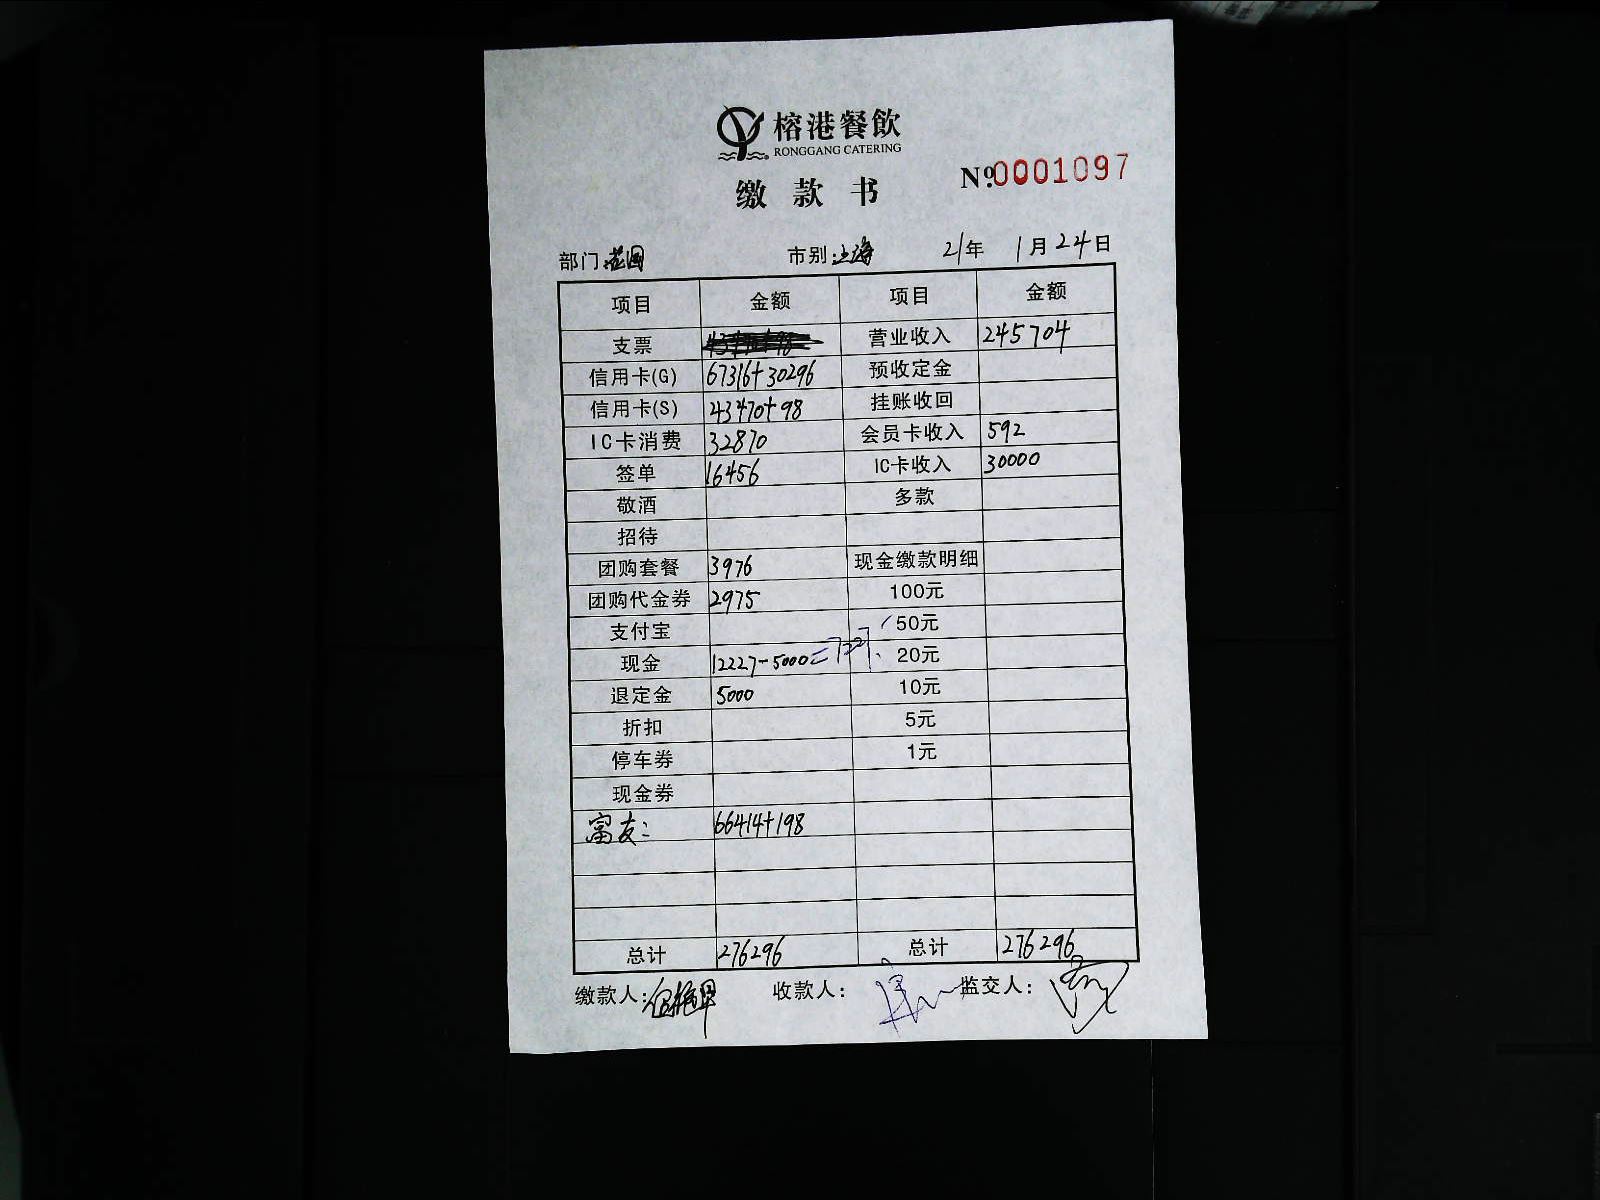 榕港餐飲
RONGGANG CATERING
缴款书 №0001097
部门: 市别:上海 21年 1月24日
项目 金额 项目 金额
支票 营业收入 245704
信用卡(G) 67316+30296 预收定金
信用卡(S) 43470+98 挂账收回
IC卡消费 32870 会员卡收入 592
签单 16456 IC卡收入 30000
敬酒 多款
招待
团购套餐 3976 现金缴款明细
团购代金券 2975 100元
支付宝 50元
现金 12227-5000=7227 20元
退定金 5000 10元
折扣 5元
停车券 1元
现金券
富友: 66414+198
总计 276296 总计 276296
缴款人: 收款人: 监交人: